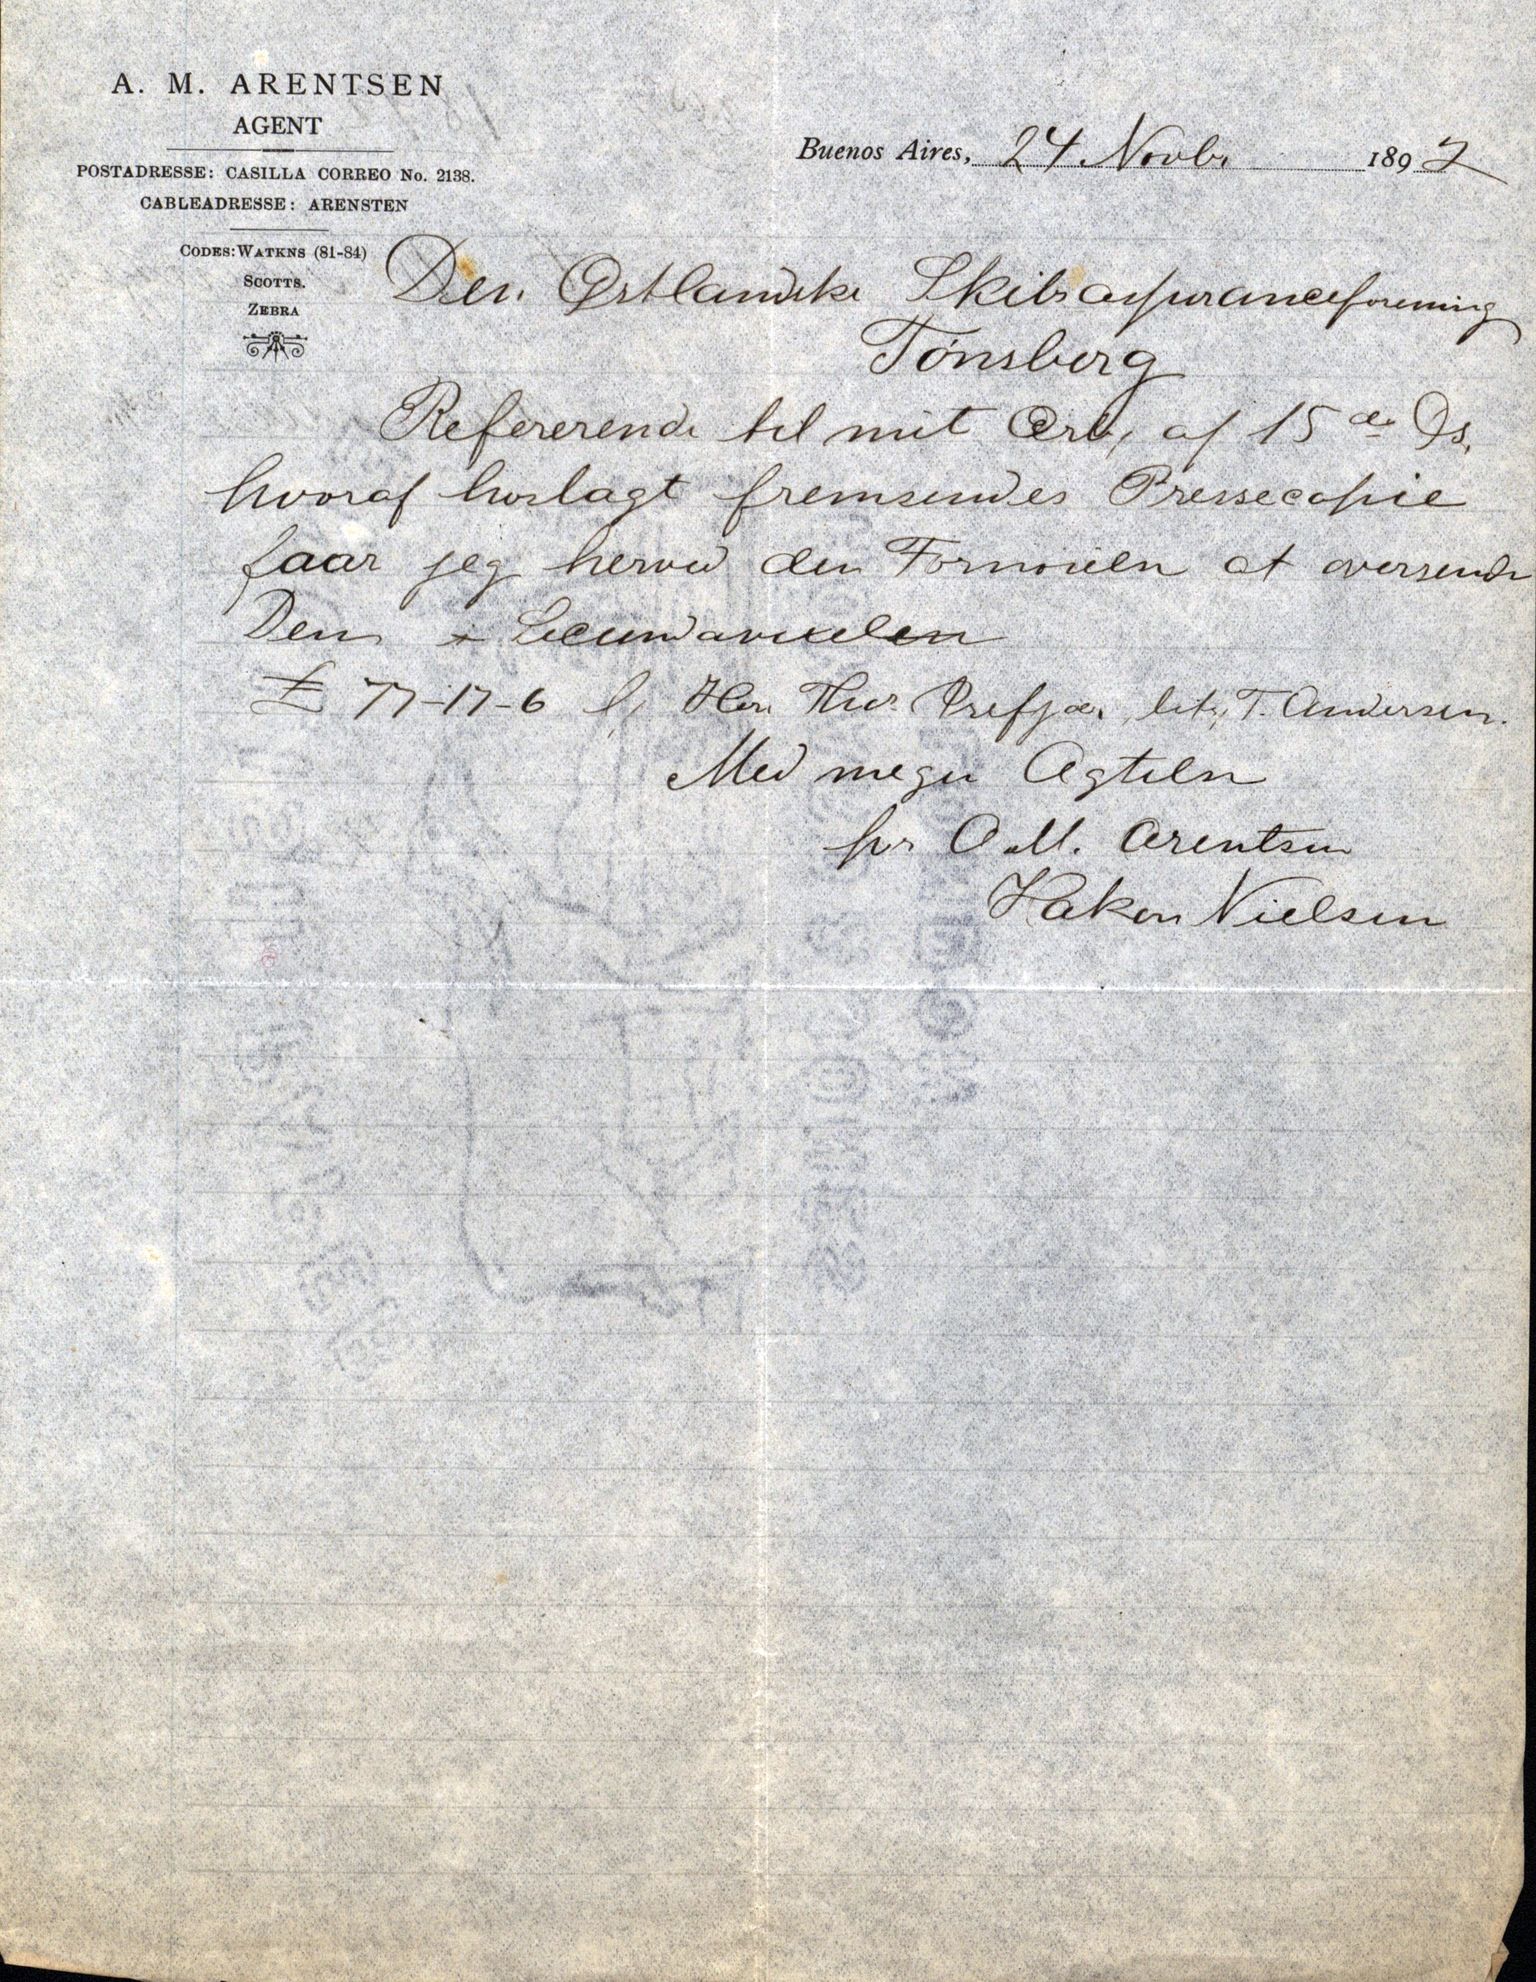 A. M. ARENTSEN
AGENT
POSTADRESSE: CASILLA CORREO No. 2138.
CABLEADRESSE: ARENSTEN
CODES: WATKNS (81-84)
SCOTTS.
ZEBRA
Buenos Aires, 24 Novbr 1892
Den Østlandske Skibsassuranceforening
Tønsberg
Refererende til mit Ærb. af 15 de Ds.
hvoraf hoslagt fremsendes Pressecopie
faar jeg herved den Fornøieln at oversende
Dem Secundavexelen
£ 77-17-6 Herr Thor Prefjær T. Andersen.
Med megen Agteln
for A. M. Arentsen
Hakon Nielsen